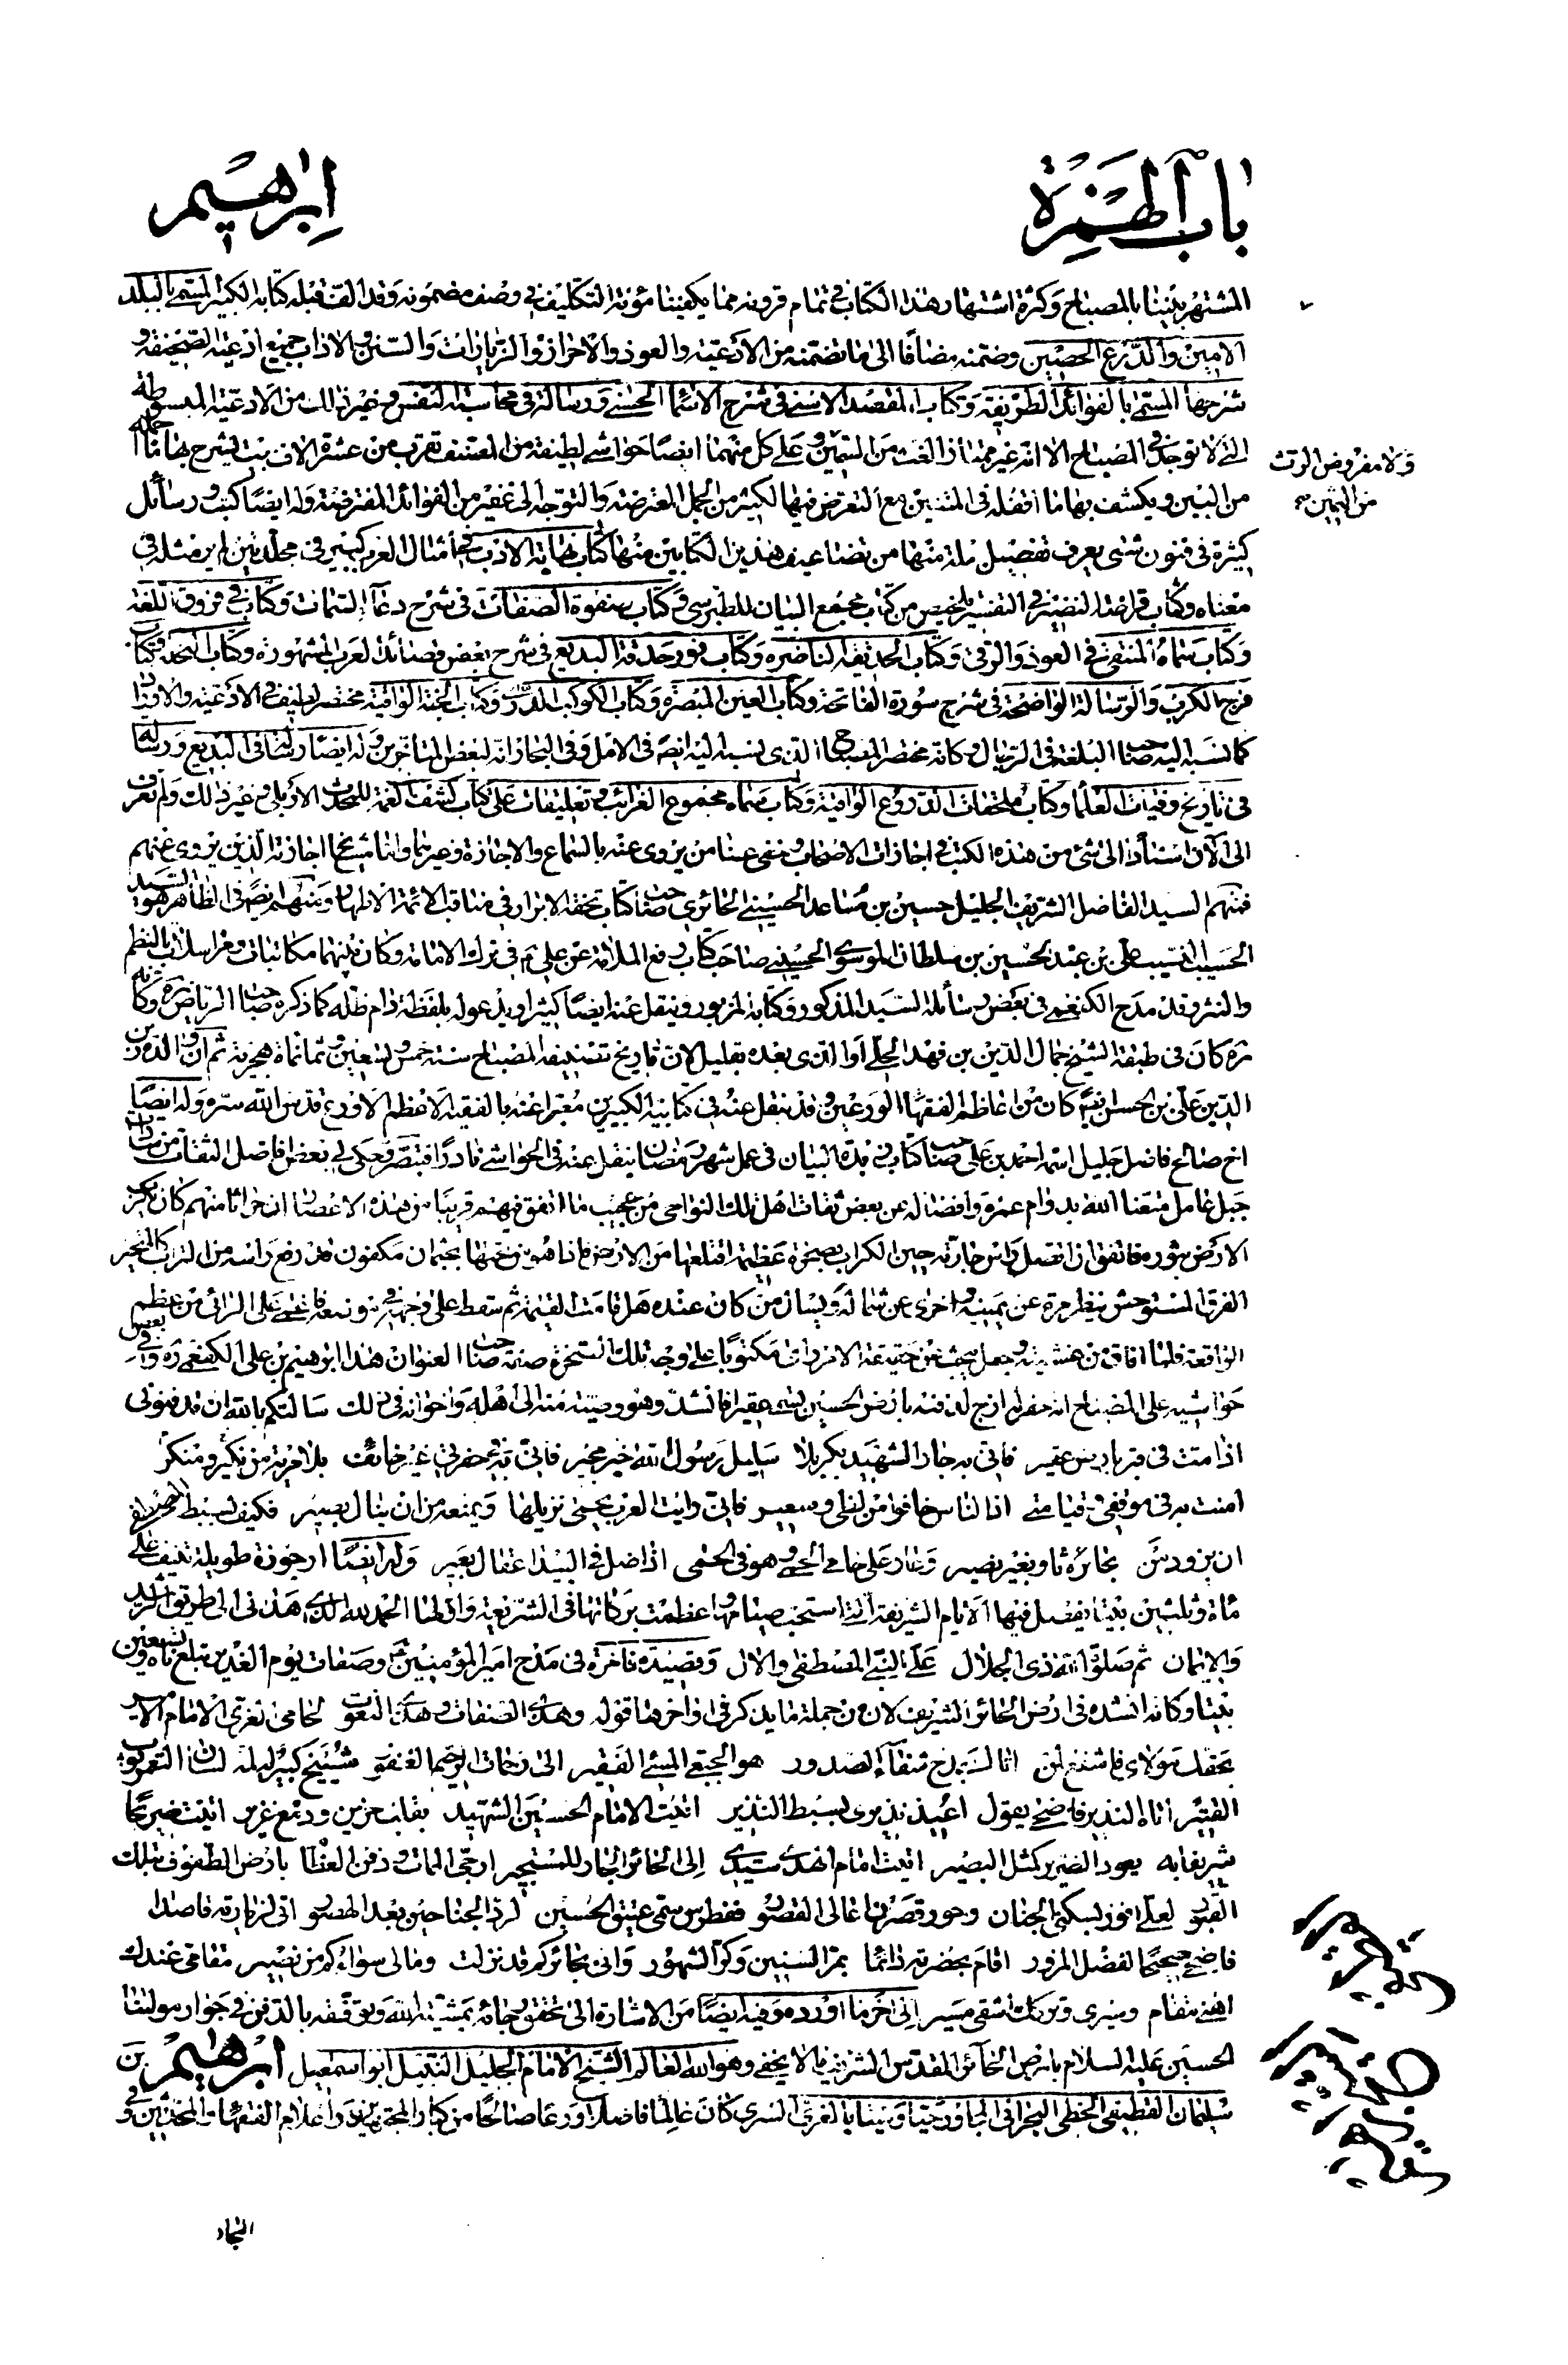 باب الهمزة
ابراهيم
المشتهر بيننا بالمصباح وكثرة اشتهار هذا الكتاب في تمام قرونه مما يكفينا مؤنة التكليف في وصف مضمونه وقد الف قبله كتابه الكبير المسمى بالبلد
الامين والدرع الحصين وضمنه مضافا الى ما تضمنه من الأدعية والعوذ والاحراز والزيارات والسنن والاداب جميع ادعية الصحيفة و
شرحها المسمى بالفوائد الطريفة وكتاب المقصد الاسنى في شرح الاسماء الحسنى ورسالة في محاسبة النفس وغير ذلك من الادعية المبسوطة
التي لا توجد في المصباح الا انه غير ممتاز الغث من السمين وعلى كل منهما ايضا حواشي لطيفة من المصنف تقرب من عشرة الاف بيت يشرح بها ما
ولا مفروض الرث
من الثمين
من البين ويكشف بها ما اقفله في المتنين مع التعرض فيها لكثير من الجمل المعترضة والتوجه الى غفير من الفوائد المفترضة وله ايضا كتب ورسائل
كثيرة في فنون شتى يعرف تفصيل ثلة منها من تضاعيف هذين الكتابين منها كتاب نهاية الادب في أمثال العرب كبير في مجلدين لم ير مثله في
معناه وكتاب قراضة النضير في التفسير ملخص من كتاب مجمع البيان للطبرسي وكتاب صفوة الصفات في شرح دعاء السمات وكتاب في فروق اللغة
وكتاب سماه المنتقى في العوذ والرقى وكتاب الحديقة الناضرة وكتاب نور حدقة البديع في شرح بعض قصائد العرب المشهورة وكتاب النحلة وكتاب
فرج الكرب والرسالة الواضحة في شرح سورة الفاتحة وكتاب العين المبصرة وكتاب الكوكب الدري وكتاب الجنة الواقية مختصر لطيف في الأدعية والاوراد
كما نسبه اليه صاحب البلغة في الرجال وكانه مختصر المصباح الذي نسبه اليه ايضا في الامل وفي البحار انه لبعض المتأخرين وله ايضا رسالة في البديع ورسالة
في تاريخ وفيات العلماء وكتاب ملحقات الدروع الواقية وكتاب سماه مجموع الغرائب وتعليقات على كتاب كشف الغمة للمحدث الاربلي وغير ذلك ولم نعرف
الى الآن استنادا الى شئ من هذه الكتب في اجازات الاصحاب وخفي عنا من يروي عنه بالسماع والاجازة وغيرهما واما مشيخة اجازته الذين يروي عنهم
فمنهم السيد الفاضل الشريف الجليل حسين بن مساعد الحسيني الحائري صاحب كتاب تحفة الابرار في مناقب الائمة الاطهار ومنهم ايضا في الظاهر هو السيد
الحسيب النسيب علي بن عبد الحسين بن سلطان الموسوي الحسيني صاحب كتاب رفع الملامة عن علي ع في ترك الامامة وكان بينهما مكاتبات ومراسلات بالنظم
والنثر وقد مدح الكفعمي في بعض رسائله السيد المذكور وكتابه المزبور وينقل عنه ايضا كثيرا ويدعو له بلفظة دام ظله كما ذكره صاحب الرياض ره وكانه
ره كان في طبقة الشيخ جمال الدين بن فهد الحلي أو الذي بعده بقليل لان تاريخ تصنيفه المصباح سنة خمس وتسعين وثمانمائة هجرية ثم ان والده زين
الدين علي بن الحسن ايضا كان من اعاظم الفقهاء الورعين وقد ينقل عنه في كتابيه الكبيرين معبرا عنه بالفقيه الاعظم الاورع قدس الله سره وله ايضا
اخ صالح فاضل جليل اسمه احمد بن علي صاحب كتاب زبدة البيان في عمل شهر رمضان ينقل عنه في الحواشي نادرا فتبصر وحكى لي بعض افاضل الثقات من سادات
جبل عامل متعنا الله بدوام عمره وافضاله عن بعض ثقات اهل تلك النواحي من عجيب ما اتفق فيهم قريبا من هذه الاعصار ان حراثا منهم كان يكرب
الارض بثوره فاتفق ان اتصل راس جارته حين الكراب بصخرة عظيمة اقتلعها من الارض فاذا هو من تحتها بجثمان مكفون قد رفع راسه من التراب كالمتحير
الفرق المستوحش ينظر مرة عن يمينه واخرى عن شماله ويسال من كان عنده هل قامت القيمة ثم سقط على وجهه في موضعه فاغمي على الرائي من عظم
الواقعة فلما افاق من غشيته وجعل يبحث عن حقيقة الامر راى مكتوبا على وجه تلك الصخرة صفة صاحب العنوان هذا ابرهيم بن علي الكفعمي ره وفي بعض
حواشيه على المصباح انه حفر له ازج لدفنه بارض الحسين تسمى عقيرا فانشد وهو وصية منه الى اهله واخوانه في ذلك سالتكم بالله ان تدفنوني
اذا مت في قبر بارض عقير فاني به جار الشهيد بكربلا سليل رسول الله خير مجير فاني به في حفرتي غير خائف بلا مرية من نكير ومنكر
امنت به في موقفي وقيامتي اذا الناس خافوا من لظى وسعير فاني رايت العرب تحمي نزيلها ويمنعه من ان ينال بضير فكيف بسبط المصطفى
ان يرد من بحائره ثاو بغير نصير وعار على حامي الحمى وهو في الحمى اذا ضل في البيدا عقال بعير وله ايضا ارجوزة طويلة تنيف على
مأة وثلثين بيتا يفصل فيها الايام الشريفة التي استحب صيامها وعظمت بركاتها في الشريعة واولها الحمد لله الذي هداني الى طريق الرشد
والايمان ثم صلوة الله ذي الجلال على النبي المصطفى والال وقصيدة فاخرة في مدح امير المؤمنين ع وصفات يوم الغدير تبلغ مأة وتسعين
بيتا وكانه انشده في ارض الحائر الشريف لان من جملة ما يذكر في اواخرها قوله وهذي الصفات وهذي النعوت لحامي نعري الامام الامير
بحقك مولاي فاشفع لمن اتاك بمدح شفاء الصدور هو الجبعي المسئ الفقير الى رحمات الرحيم الغفور شييخ كبير له لمة كساها التعمر ثوب
القتير اتاه النذير فاضحى يقول اعيذ نذيري بسبط النذير اتيت الامام الحسين الشهيد بقلب حزين ودمع غزير اتيت ضريحا
شريفا به يعود الضرير كمثل البصير اتيت امام الهدى سيدي الى الحائر الجار للمستجير ارجى الممات ودفن العظام بارض الطفوف بتلك
القبور لعلي افوز بسكنى الجنان وحور قصرن اعالي القصور ففطرس سمي عتيق الحسين لرد الجناحين بعد الهصور اتى لزيارته قاصدا
فاضحى صحيحا لفضل المزور اقام بحضرته دائما بمر السنين وكر الشهور واني بحائركم قد نزلت ومالي سواكم من نصير مقامي عندك
اهنى مقام وسيري وتركك اشقى مسير الى اخر ما اورد موفيه ايضا من الاشارة الى تحقق رجائه بمشية الله وتوفقه بالتدفن في جوار مولانا
الحسين عليه السلام بارض الحائر المقدس الشريف ما لا يخفى وهو الله العالم الشيخ الامام الجليل النبيل ابو اسمعيل ابرهيم بن
سليمان القطيفي الخطي البحراني المجاور حيا وميتا بالغري السري كان عالما فاضلا ورعا صالحا من كبار المجتهدين واعلام الفقهاء والمحدثين وفي
البحار